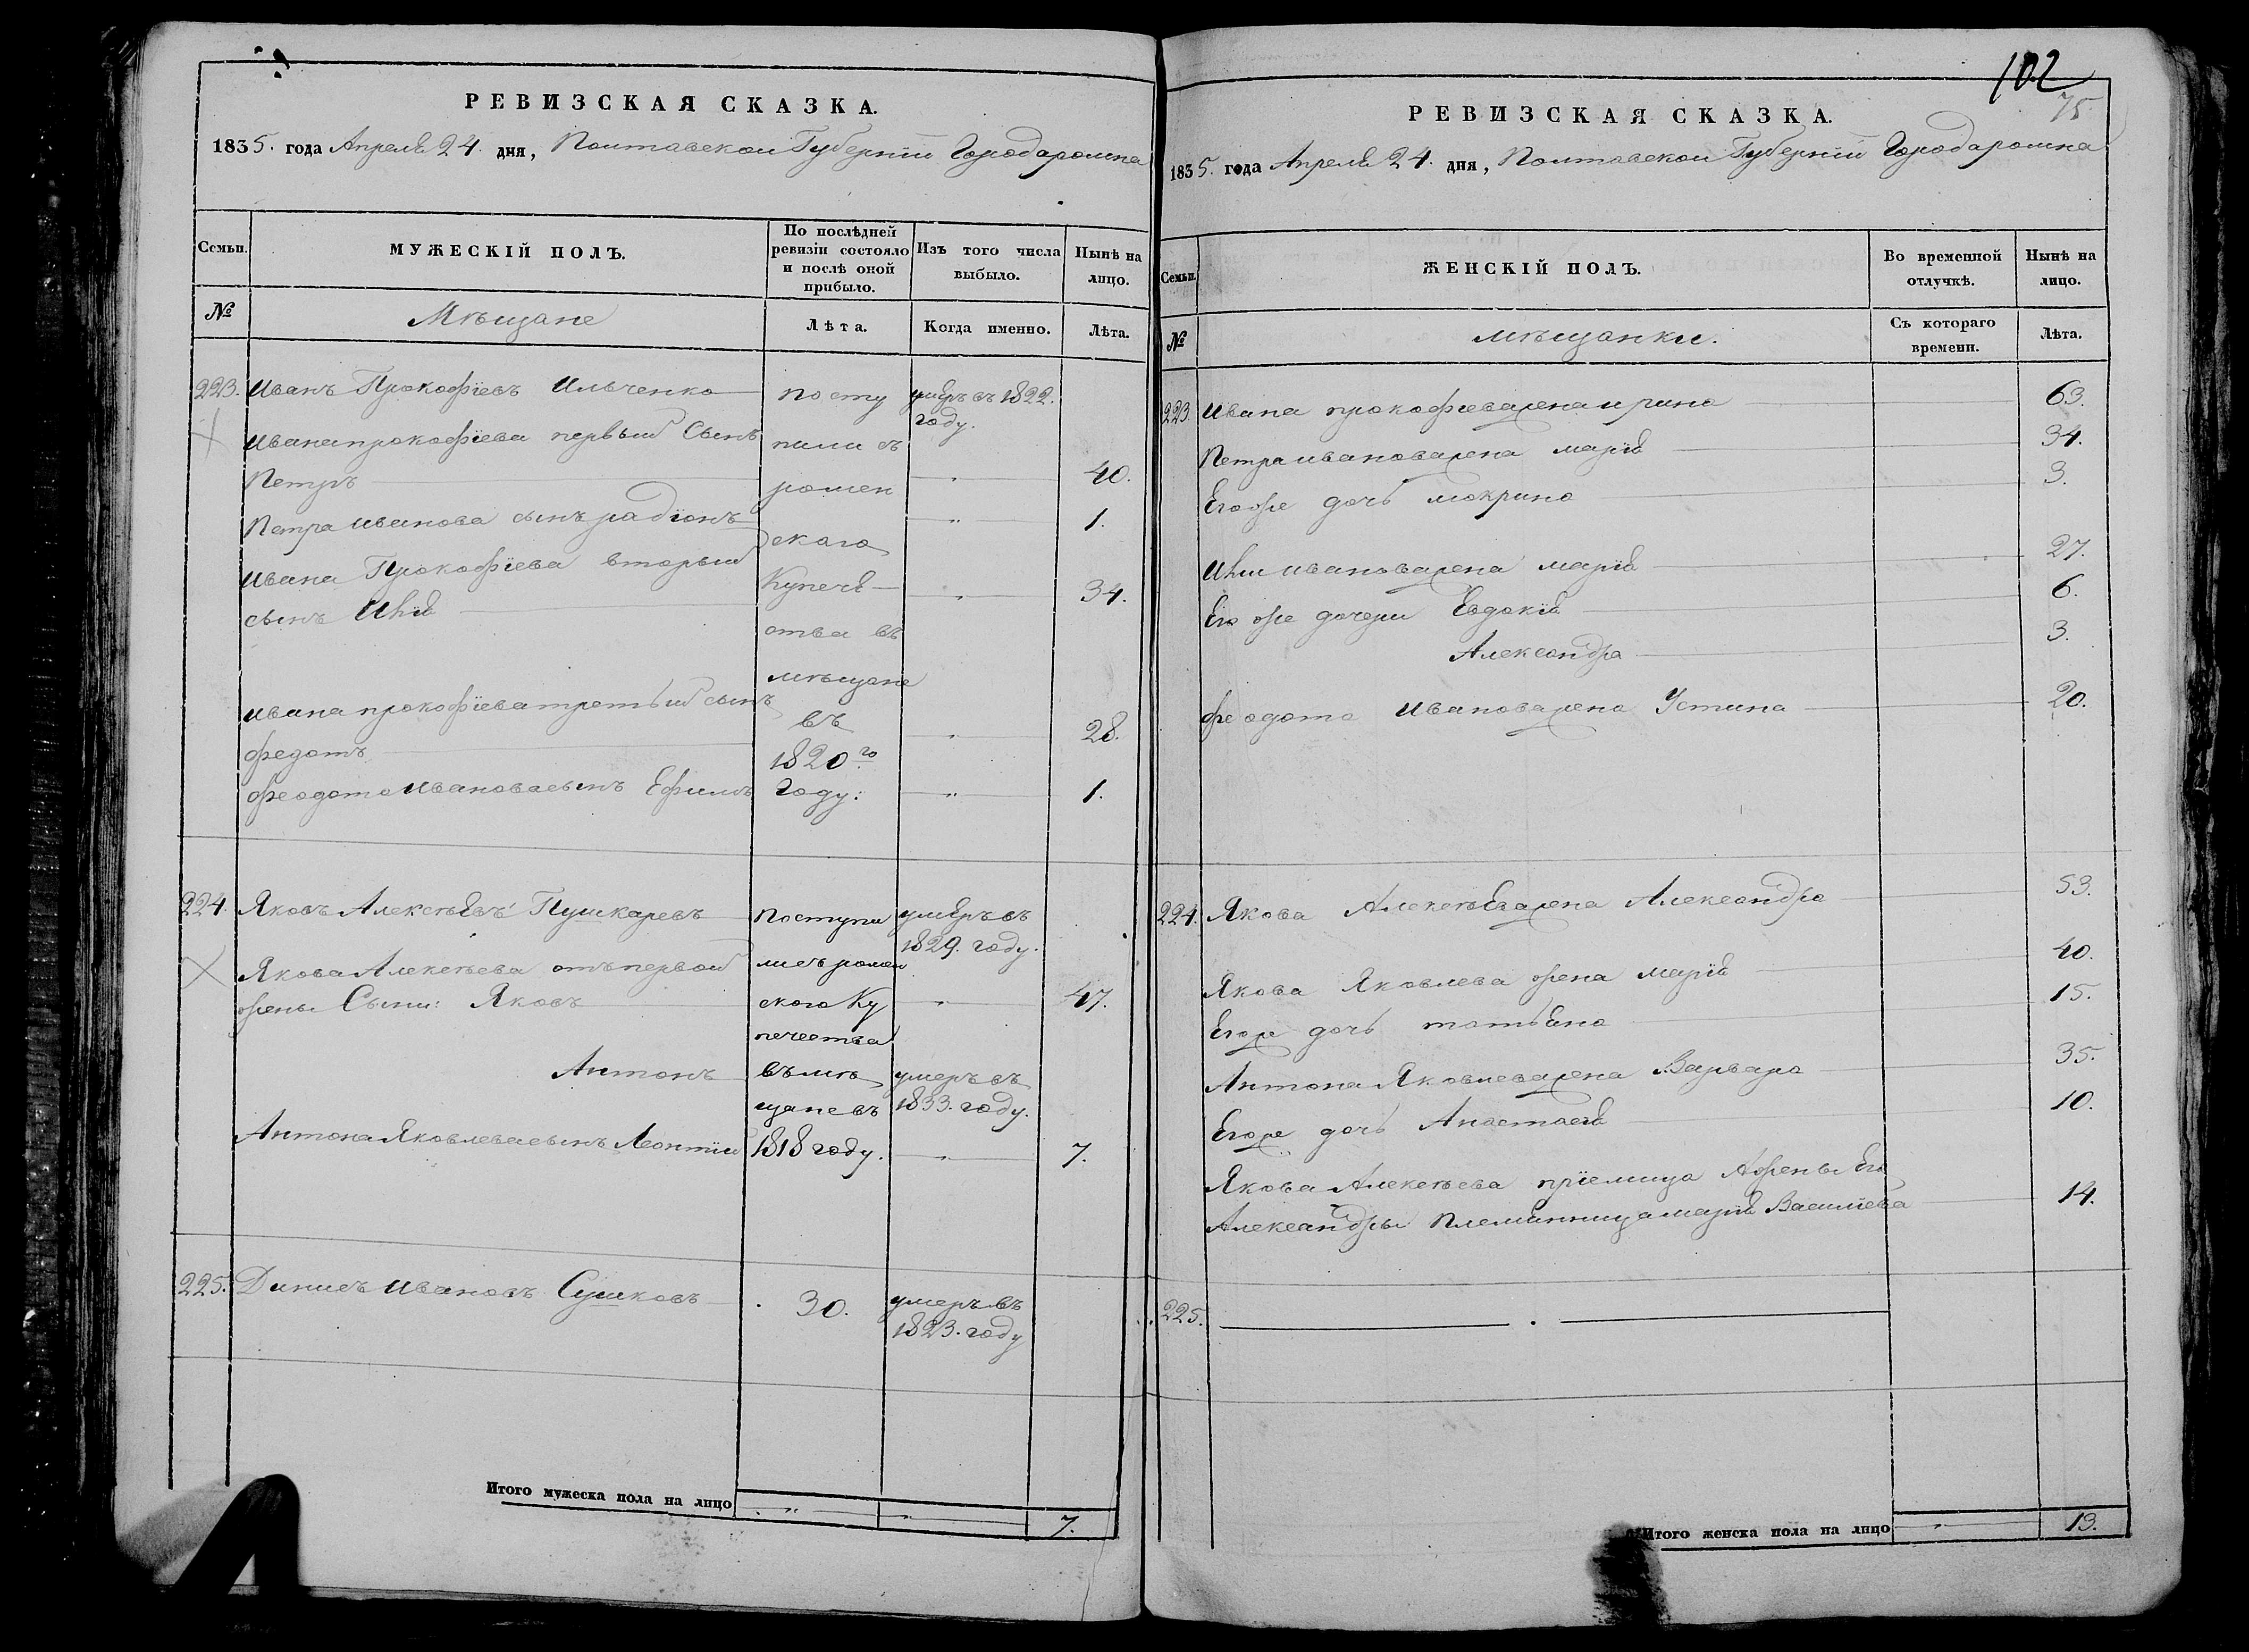 РЕВИЗСКАЯ СКАЗКА.
1835. года Апреля 24. дня, Полтавской Губернїи Города ромна
Семьи.
МУЖЕСКІЙ ПОЛЪ.
По послѣдней ревизіи состояло и послѣ оной прибыло.
Изъ того числа выбыло.
Нынѣ на лицо.
№
Мѣщане
Лѣта.
Когда именно.
Лѣта.
223. Иванъ Прокофїевъ Ильченко посту умеръ въ 1822. году.
Ивана прокофїева первый Сынъ пили съ
Петръ ромен 40.
Петра иванова сынъ радїонъ скаго 1.
Ивана Прокофїева вторый Купече
сынъ Илїя 34.
ства въ
мѣщане
ивана прокофїева третьий сынъ въ
федотъ 1820го 28.
феодота Иванова сынъ Ефимъ году. 1.
224. Яковъ Алексѣевъ Пушкаревъ поступи умеръ въ 1829. году.
Якова Алексѣева отъ первой ли съ ромен
жены Сыны: Яковъ скаго Ку 47.
печества
Антонъ въ мѣ умеръ въ
щане въ 1833. году.
Антона Яковлева сынъ Леонтїй 1818 году. 7.
225. Денисъ Ивановъ Сушковъ 30. умеръ въ 1823. году
Итого мужеска пола на лицо 7.
102
75
РЕВИЗСКАЯ СКАЗКА.
1835. года Апреля 24. дня, Полтавской Губернїи Города ромна
Семьи.
ЖЕНСКІЙ ПОЛЪ.
Во временной отлучкѣ.
Нынѣ на лицо.
№
мѣщанки.
Съ котораго времени.
Лѣта.
223 Ивана прокофїева жена ирина 63.
Петра иванова жена марїя 34.
Его же дочь мокрина 3.
Илїи иванова жена марїя 27.
Его же дочери Евдокїя 6.
Александра 3.
феодота Иванова жена Устина 20.
224. Якова Алексѣева жена Александра 53.
Якова Яковлева жена марїя 40.
Его же дочь татьяна 15.
Антона Яковлева жена Варвара 35.
Его же дочь Анастасїя 10.
Якова Алексѣева прїемица А жены Его
Александры племянница марїя Василїева 14.
225.
Итого женска пола на лицо 13.